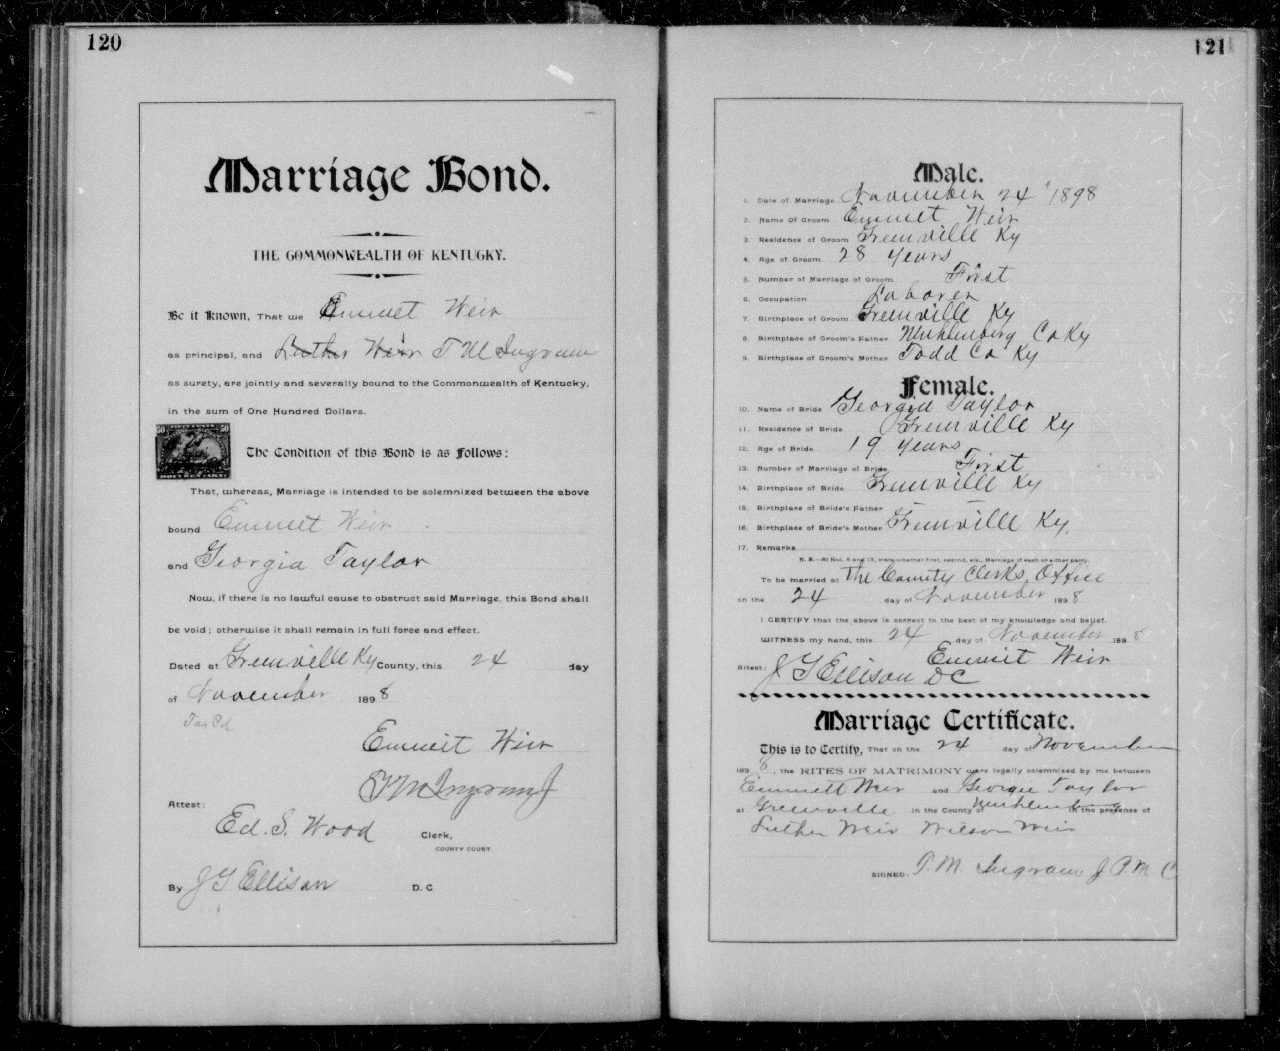 120
Marriage Bond.
THE COMMONWEALTH OF KENTUCKY.
Be it Known, That we Emmet Weir
as principal, and Luther Weir T M Ingram
as surety, are jointly and severally bound to the Commonwealth of Kentucky,
in the sum of One Hundred Dollars.
50 50
The Condition of this Bond is as Follows:
That, whereas, Marriage is intended to be solemnized between the above
bound Emmet Weir
and Georgia Taylor
Now, if there is no lawful cause to obstruct said Marriage, this Bond shall
be void; otherwise it shall remain in full force and effect.
Dated at Greenville Ky County, this 24 day
of November 1898
Tax Pd
Emmit Weir
T M Ingram J
Attest:
Ed. S. Wood Clerk,
COUNTY COURT.
By J G Ellison D. C.
121
Male.
1. Date of Marriage November 24 1898
2. Name Of Groom Emmet Weir
3. Residence of Groom Greenville Ky
4. Age of Groom 28 years
5. Number of Marriage of Groom First
6. Occupation Laborer
7. Birthplace of Groom Greenville Ky
8. Birthplace of Groom's Father Muhlenberg Co Ky
9. Birthplace of Groom's Mother Todd Co Ky
Female.
10. Name of Bride Georgia Taylor
11. Residence of Bride Greenville Ky
12. Age of Bride 19 years
13. Number of Marriage of Bride First
14. Birthplace of Bride Greenville Ky
15. Birthplace of Bride's Father
16. Birthplace of Bride's Mother Greenville Ky.
17. Remarks
N. B.—At Nos. 5 and 13, state whether first, second, etc., Marriage of each or either party.
To be married at The County Clerks Office
on the 24 day of November 1898
I CERTIFY that the above is correct to the best of my knowledge and belief.
WITNESS my hand, this 24 day of November 1898
Emmit Weir
Attest: J G Ellison DC
Marriage Certificate.
This is to Certify, That on the 24 day of November
1898, the RITES OF MATRIMONY were legally solemnized by me between
Emmett Weir and Georgie Taylor
at Greenville in the County of Muhlenberg in the presence of
Luther Weir Wilson Weir
SIGNED: T. M. Ingram J P M C